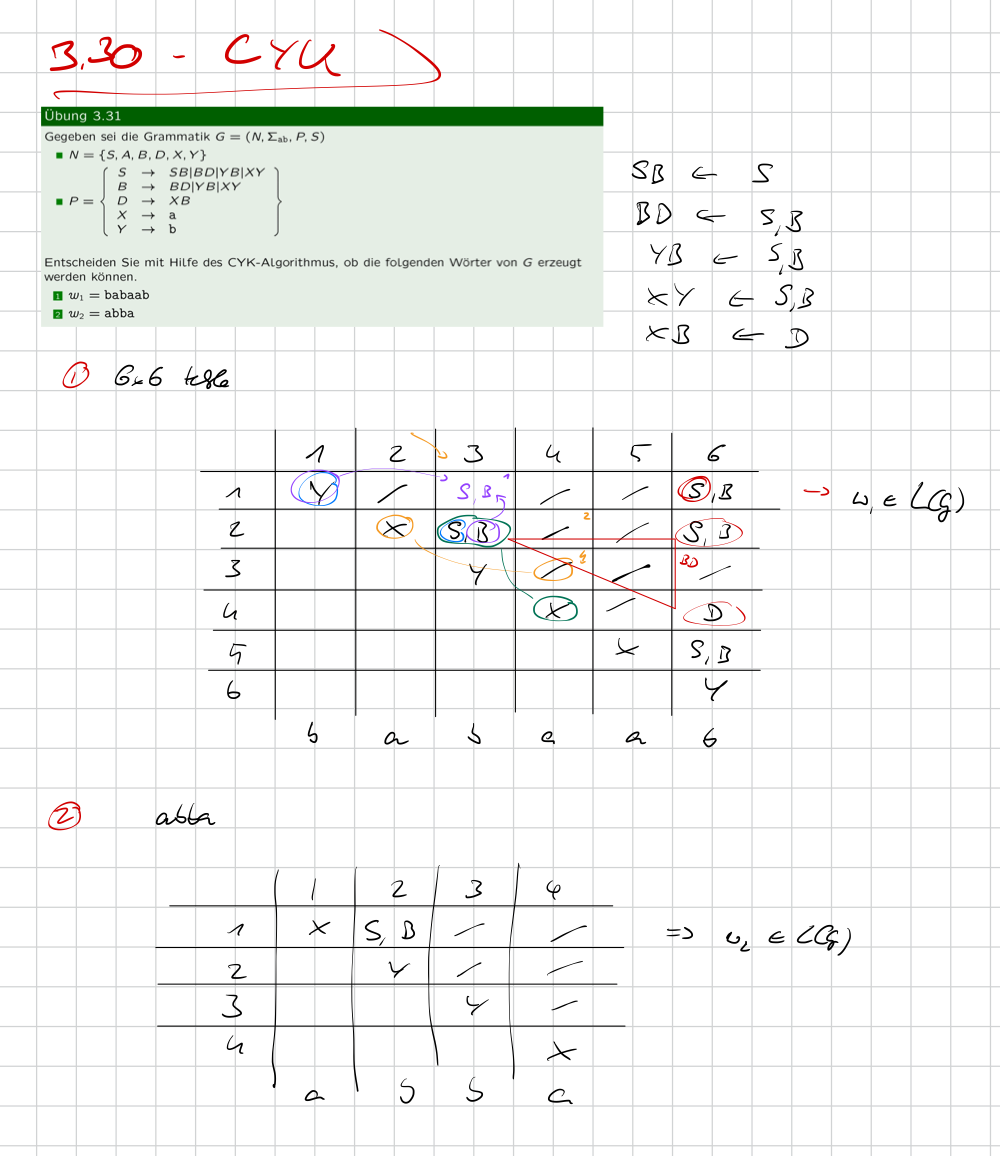 3.30 - CYK
Übung 3.31
Gegeben sei die Grammatik G = (N, Σab, P, S)
■ N = {S, A, B, D, X, Y}
■ P = {
S → SB|BD|YB|XY
B → BD|YB|XY
D → XB
X → a
Y → b
}
Entscheiden Sie mit Hilfe des CYK-Algorithmus, ob die folgenden Wörter von G erzeugt
werden können.
1 w₁ = babaab
2 w₂ = abba
SB ← S
BD ← S,B
YB ← S,B
XY ← S,B
XB ← D
① 6x6
1 2 3 4 5 6
1 Y / S,B 1 / / S,B → w₁ ∈ L(G)
2 X S,B / 2 / S,B
3 Y / 4 / BD /
4 X / D
5 X S,B
6 Y
b a b a a b
② abba
1 2 3 4
1 X S,B / / ⇒ w₂ ∈ L(G)
2 Y / /
3 Y /
4 X
a b b a